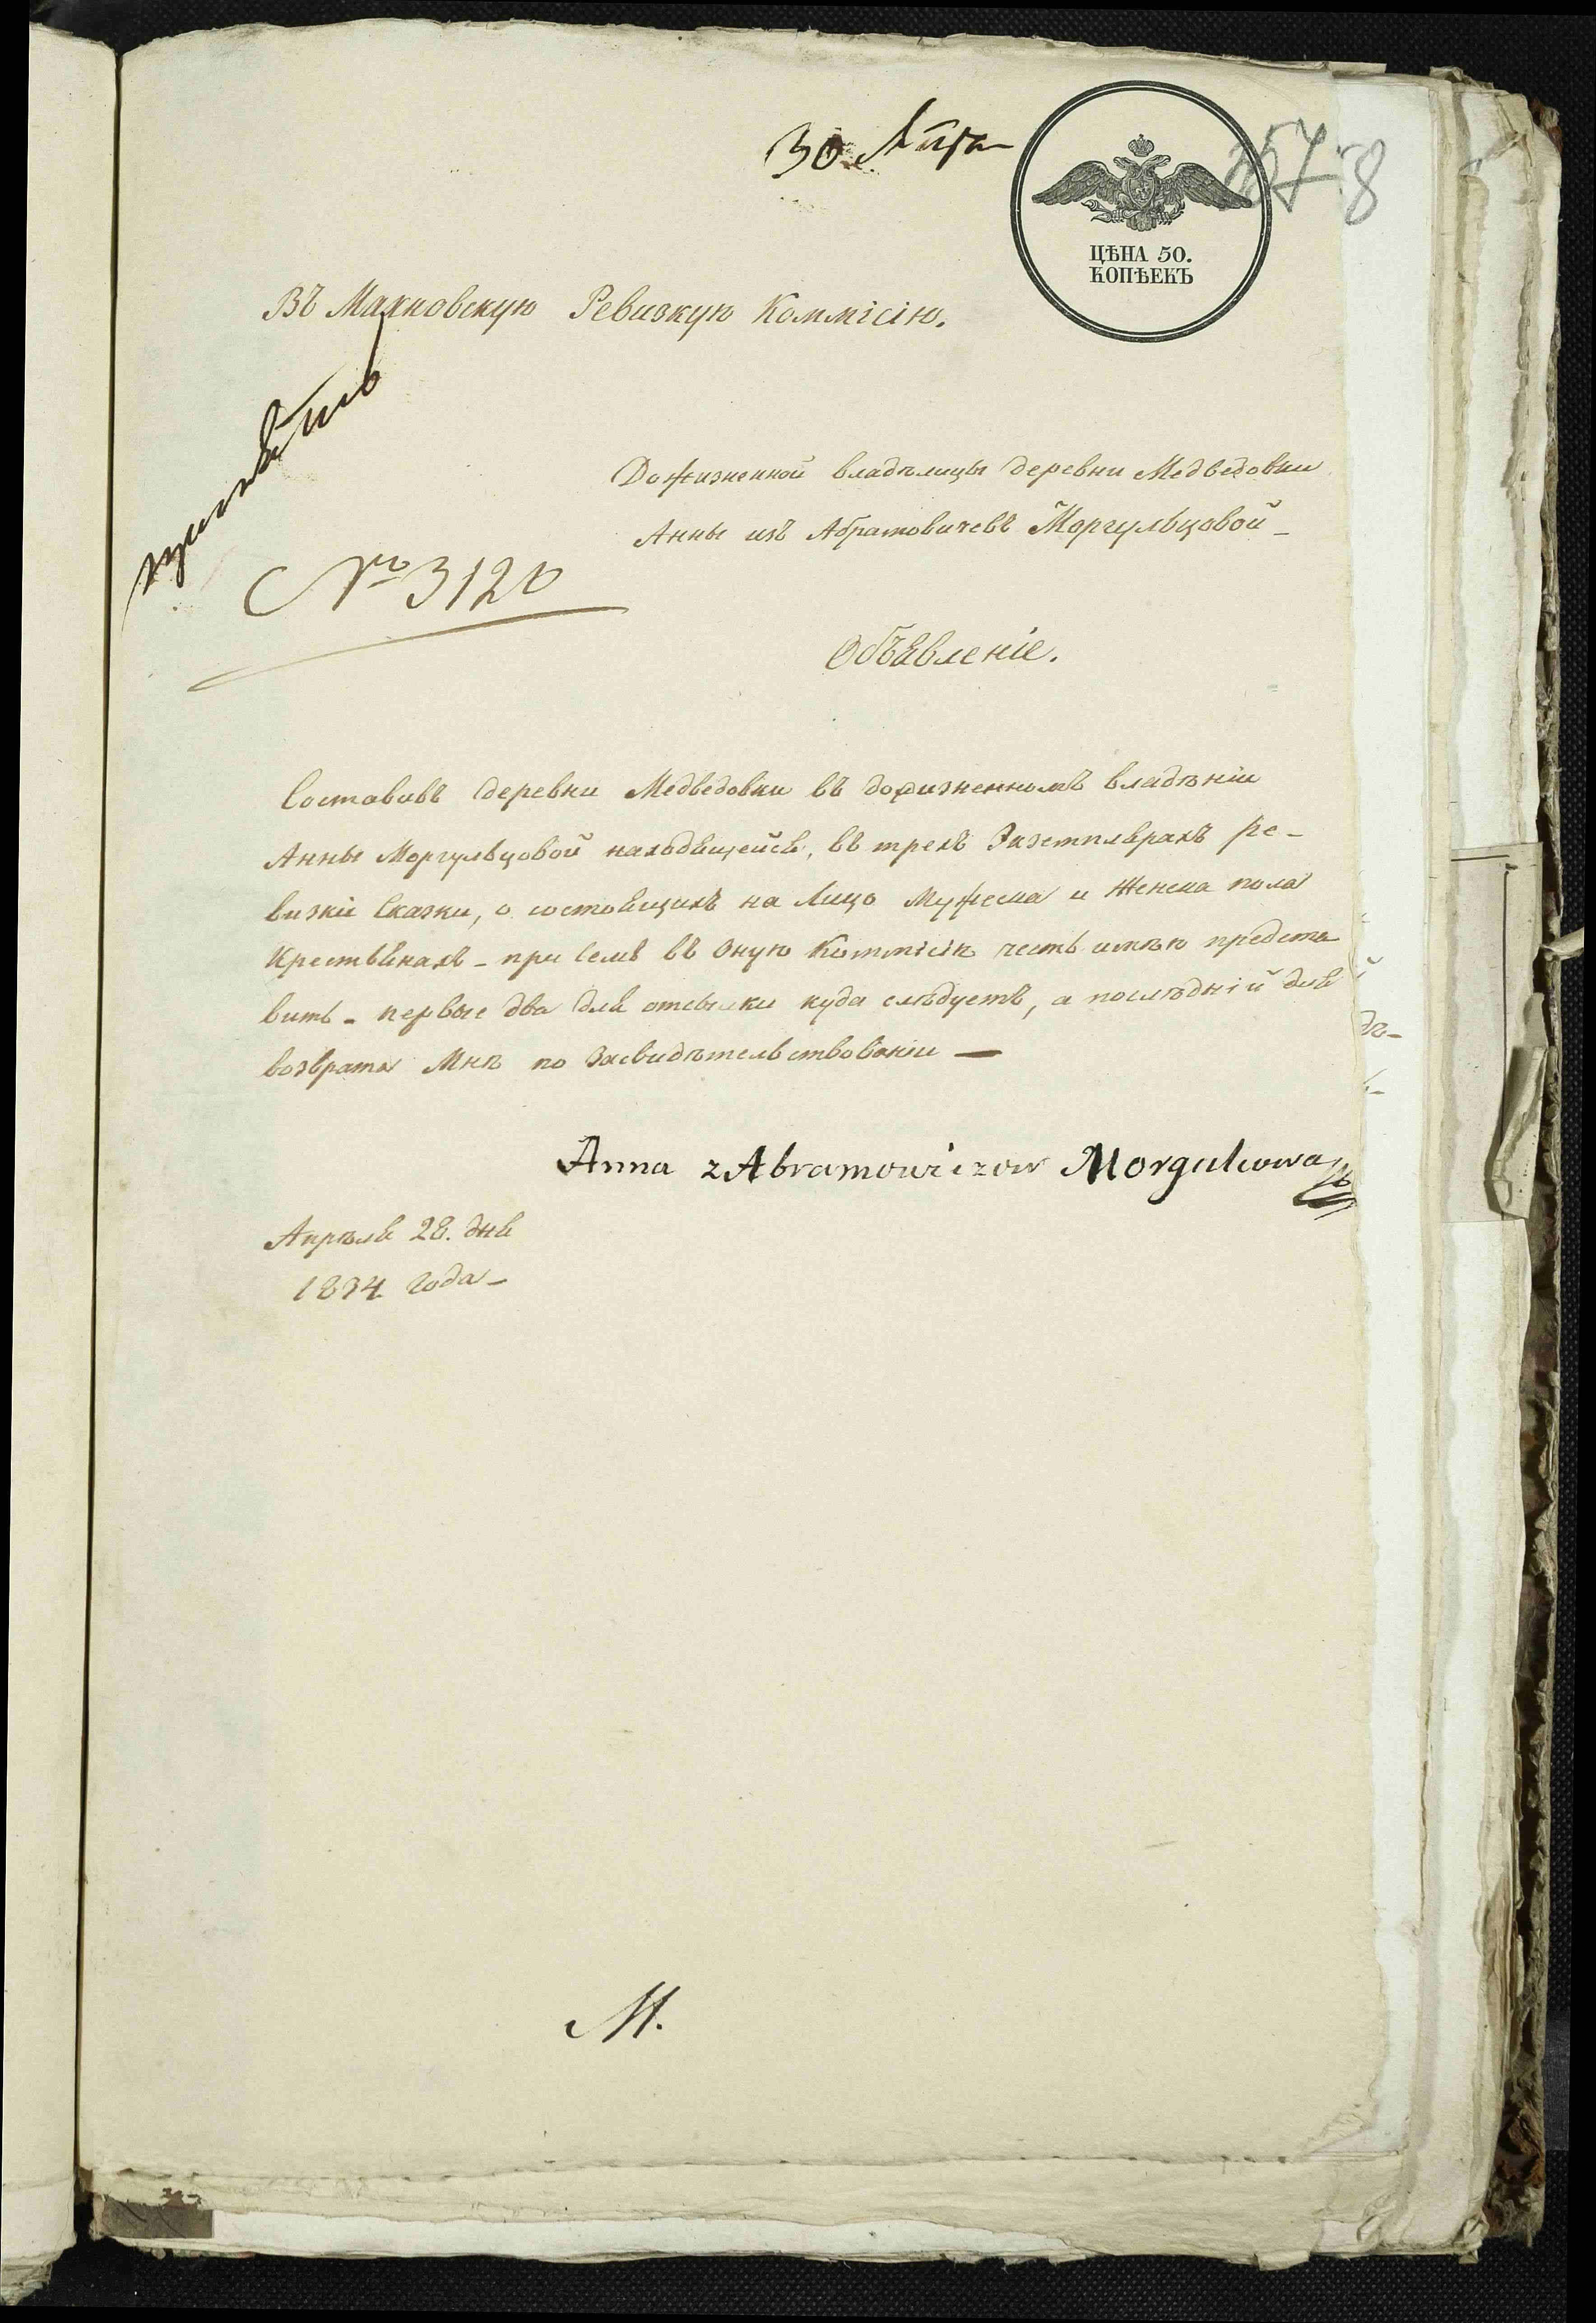 30 Апр
578
ЦѢНА 50.
КОПѢЕКЪ
Въ Махновскую Ревизкую Коммісію.
Дожизненной владѣлицы деревни Медведовки
Анны изъ Абрамовичевъ Моргульцовой
№ 3120
Объявленіе.
Составивъ деревни Медведовки въ дожизненномъ владѣніи
Анны Моргульцовой находящейся, въ трехъ Экземплярахъ ре-
визкіе Сказки, о состоящихъ на Лицо Мужеска и Женска пола
Крестьянахъ - при семъ въ Оную Коммісію честь имѣю предста
вить - первые два для отсылки куда слѣдуетъ, а послѣдній для
возврата Мнѣ по Засвидѣтельствованіи —
Anna z Abramowiczow Morgulcowa
Апрѣля 28. дня
1834 года -
М.